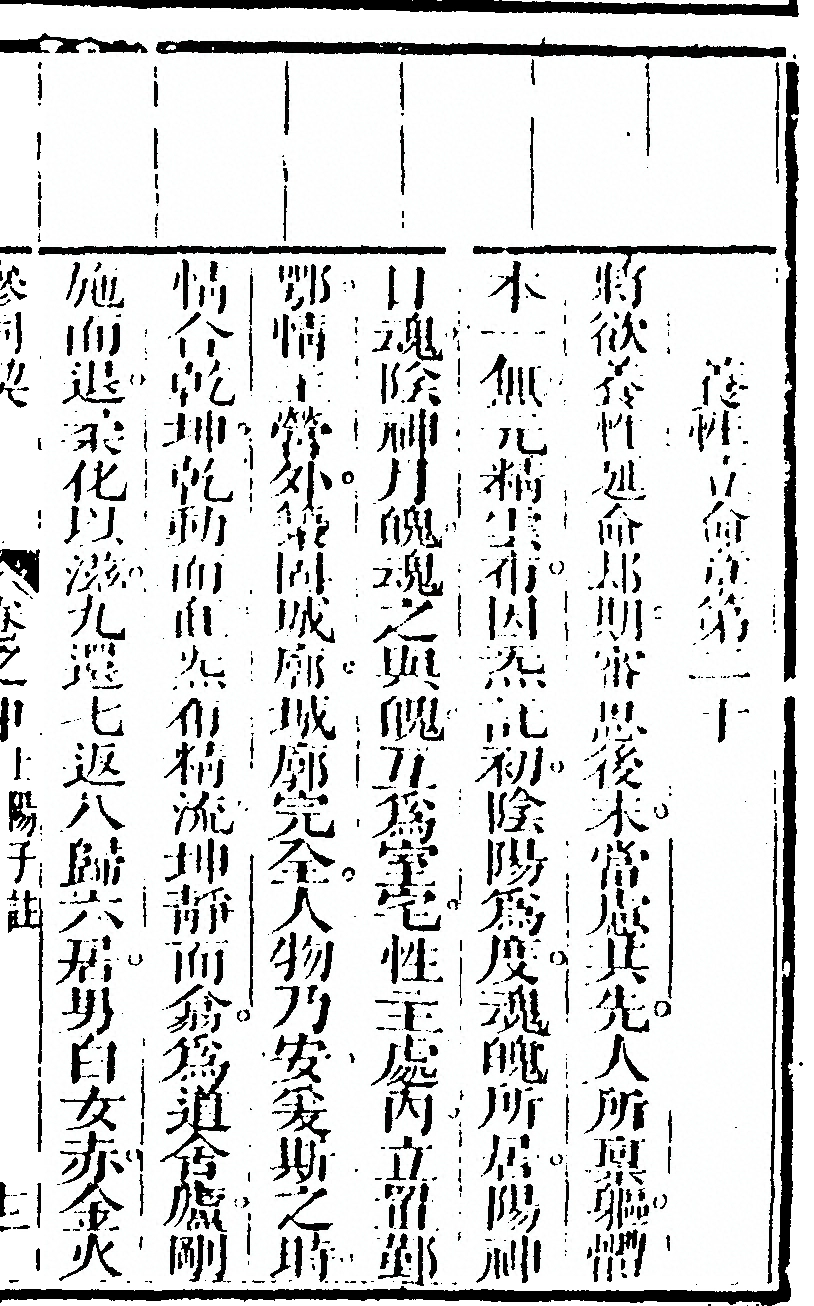 養性立命章第二十
將欲養性延命却期審思後末當慮其先人所稟軀體
本一無元精雲布因炁託初陰陽爲度魂魄所居陽神
日魂陰神月魄魂之與魄互爲室宅性主處內立置鄞
鄂情主營外築固城廓城廓完全人物乃安爰斯之時
情合乾坤乾動而直炁布精流坤靜而翕爲道舍廬剛
施而退柔化以滋九還七返八歸六居男白女赤金火
參同契 卷之中 上陽子註